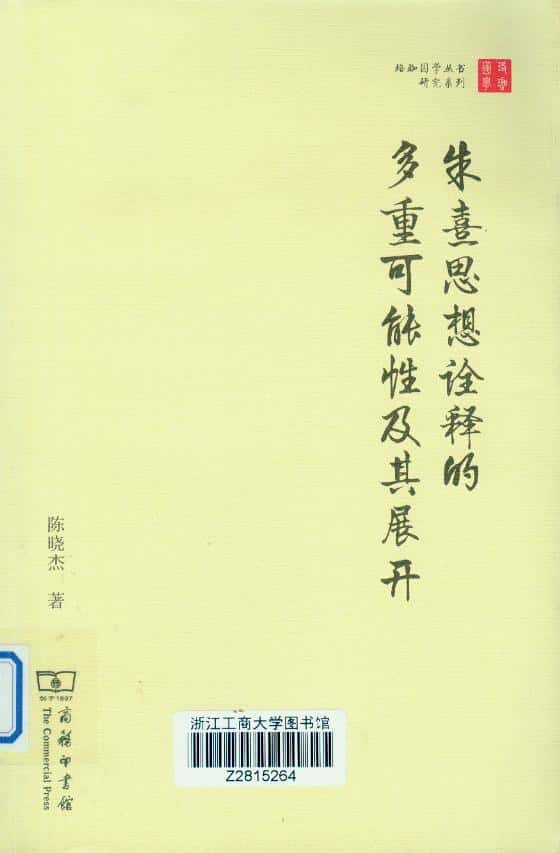 珞珈国学丛书
研究系列
珞珈国学
朱熹思想诠释的
多重可能性及其展开
陈晓杰 著
创于1897
商务印书馆
The Commercial Press
浙江工商大学图书馆
Z2815264